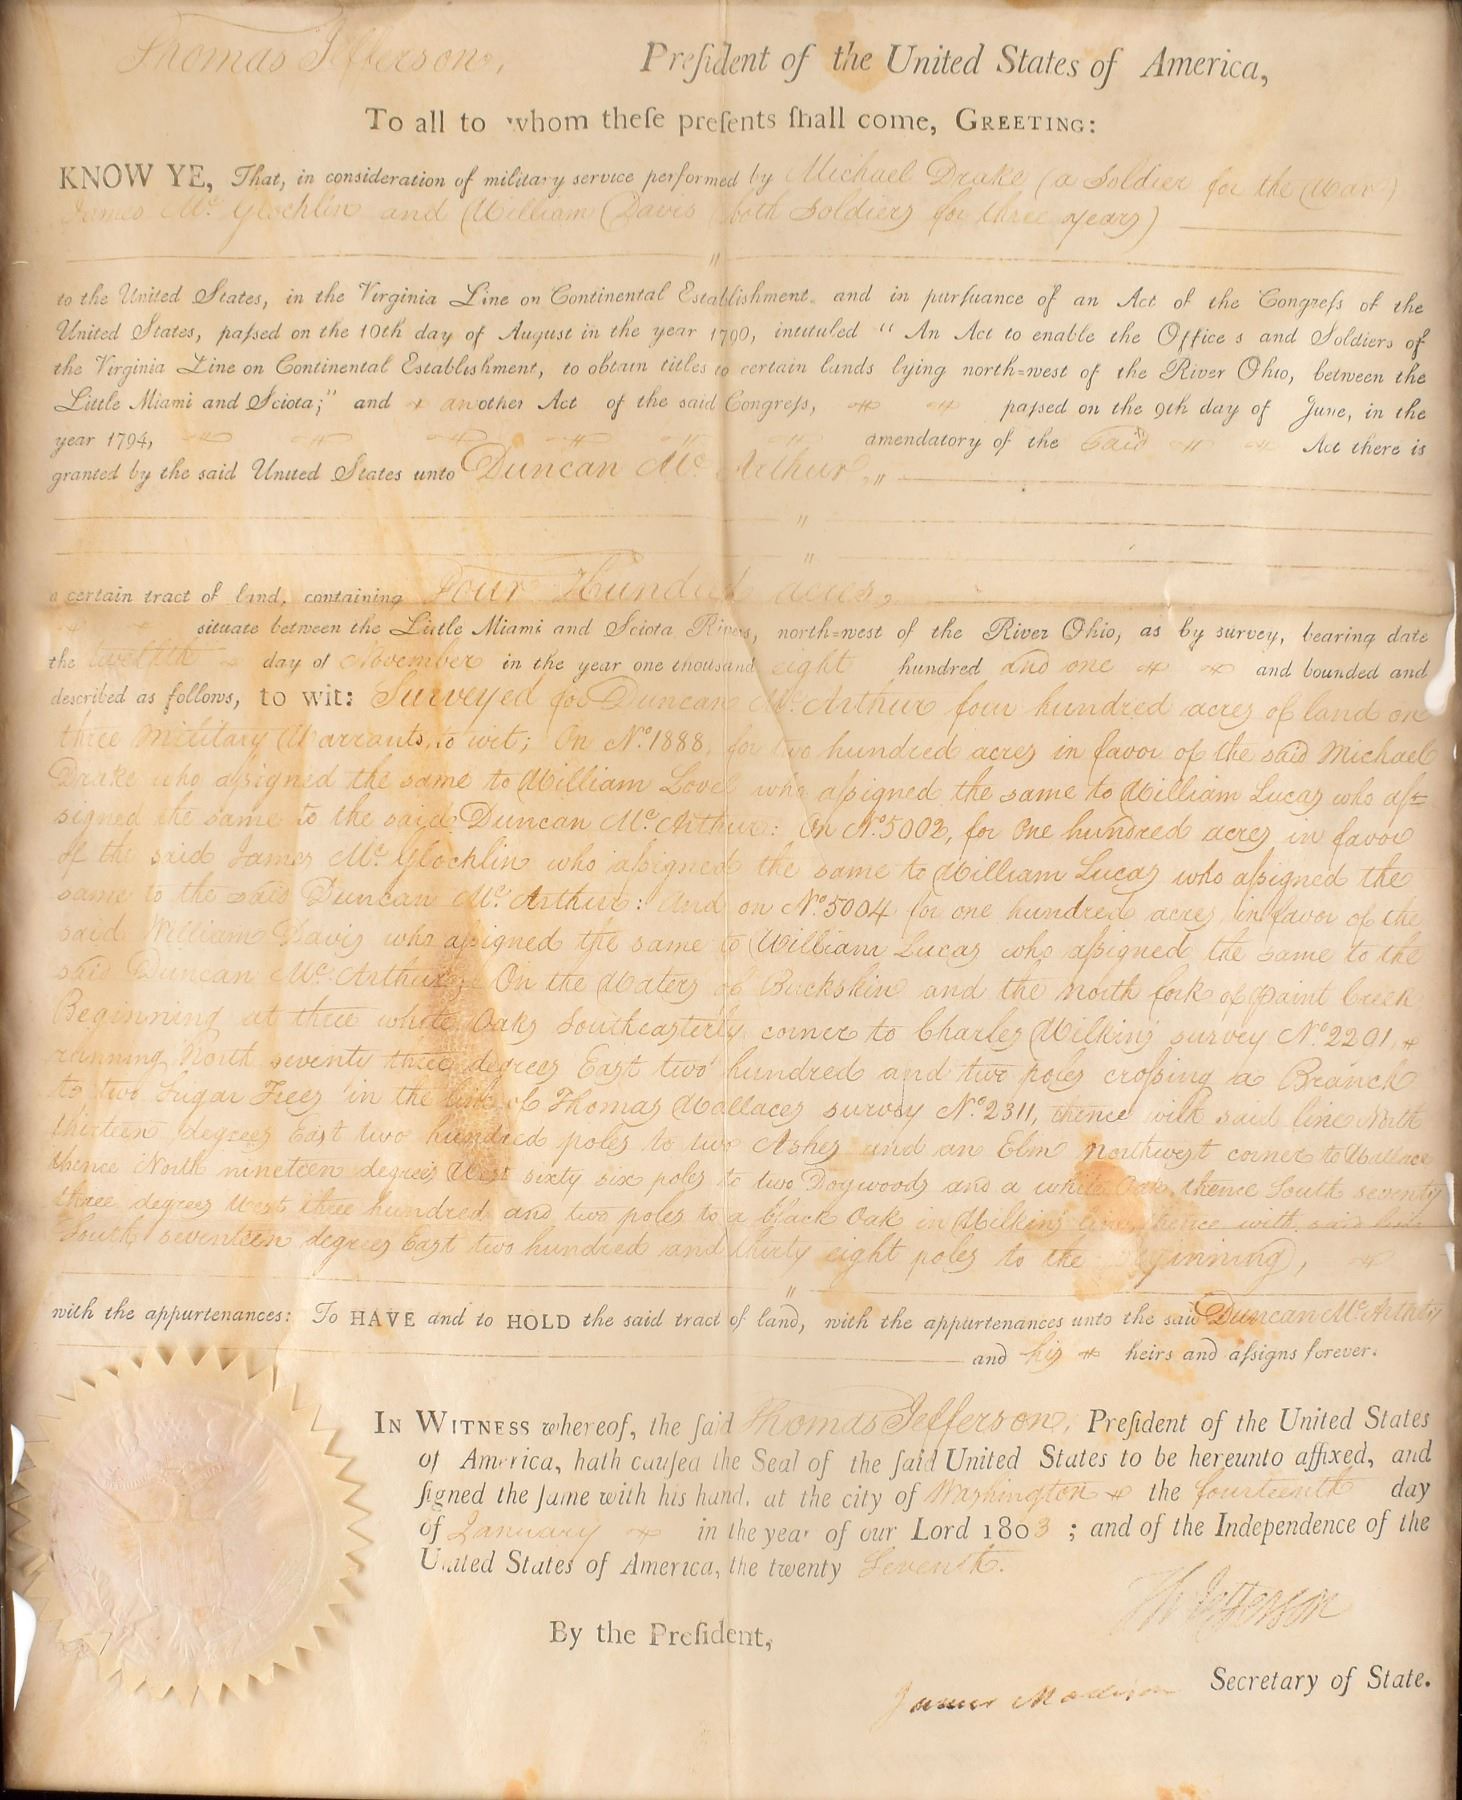 Thomas Jefferson, Preſident of the United States of America,
To all to whom theſe preſents ſhall come, GREETING:
KNOW YE, That, in consideration of military service performed by Michael Drake (a Soldier for the War)
James Mc. Glochlin and William Davis (both Soldiers for three years)
to the United States, in the Virginia Line on Continental Establishment, and in purſuance of an Act of the Congreſs of the
United States, paſsed on the 10th day of August in the year 1790, intituled " An Act to enable the Office s and Soldiers of
the Virginia Line on Continental Establishment, to obtain titles to certain lands lying north=west of the River Ohio, between the
Little Miami and Sciota;" and another Act of the said Congreſs, paſsed on the 9th day of June, in the
year 1794, amendatory of the said Act there is
granted by the said United States unto Duncan Mc. Arthur,
a certain tract of land, containing Four Hundred acres,
situate between the Little Miami and Sciota Rivers, north=west of the River Ohio, as by survey, bearing date
the twelfth day of November in the year one thousand eight hundred and one and bounded and
described as follows, to wit: Surveyed for Duncan Mc. Arthur four hundred acres of land on
three Military Warrants, to wit; On No. 1888, for two hundred acres in favor of the said Michael
Drake who aſsigned the same to William Lovel who aſsigned the same to William Lucas who aſ=
signed the same to the said Duncan Mc. Arthur: On No. 5002, for One hundred acres in favor
of the said James Mc. Glochlin who aſsigned the same to William Lucas who aſsigned the
same to the said Duncan Mc. Arthur: And on No. 5004 for one hundred acres in favor of the
said William Davis who aſsigned the same to William Lucas who aſsigned the same to the
said Duncan Mc. Arthur; On the Waters of Buckskin and the north fork of Paint Creek
Beginning at three white Oaks Southeasterly corner to Charles Wilkins survey No. 2201,
running North seventy three degrees East two hundred and two poles croſsing a Branch
to two Sugar Trees in the line of Thomas Wallaces survey No. 2311, thence with said line North
thirteen degrees East two hundred poles to two Ashes and an Elm northwest corner to Wallace
thence North nineteen degrees West sixty six poles to two Dogwoods and a white Oak, thence South seventy
three degrees West three hundred and two poles to a black Oak in Wilkins line, thence with said line
South seventeen degrees East two hundred and thirty eight poles to the Beginning,
with the appurtenances: To HAVE and to HOLD the said tract of land, with the appurtenances unto the said Duncan Mc. Arthur
and his heirs and aſsigns forever.
IN WITNESS whereof, the ſaid Thomas Jefferson, Preſident of the United States
of America, hath cauſed the Seal of the ſaid United States to be hereunto affixed, and
ſigned the ſame with his hand, at the city of Washington the fourteenth day
of January in the year of our Lord 1803 ; and of the Independence of the
United States of America, the twenty Seventh.
Th Jefferson
By the Preſident,
James Madison Secretary of State.